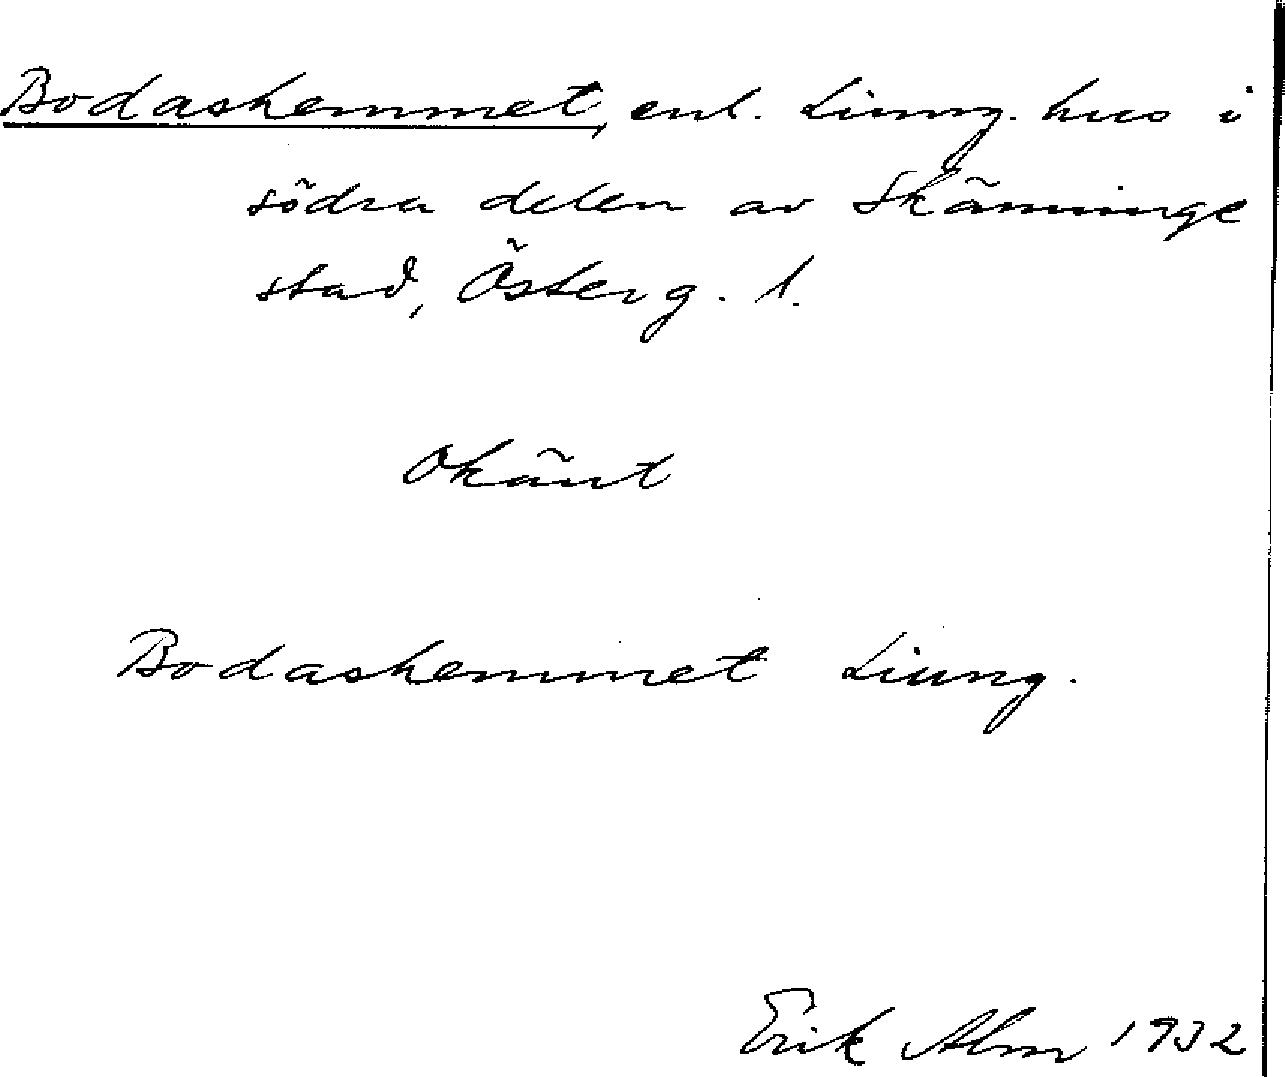 Bodashemmet, enl. Liung. hus i
södra delen av Skänninge
stad, Österg. l.
Okänt
Bodashemmet Liung.
Erik Alm 1932